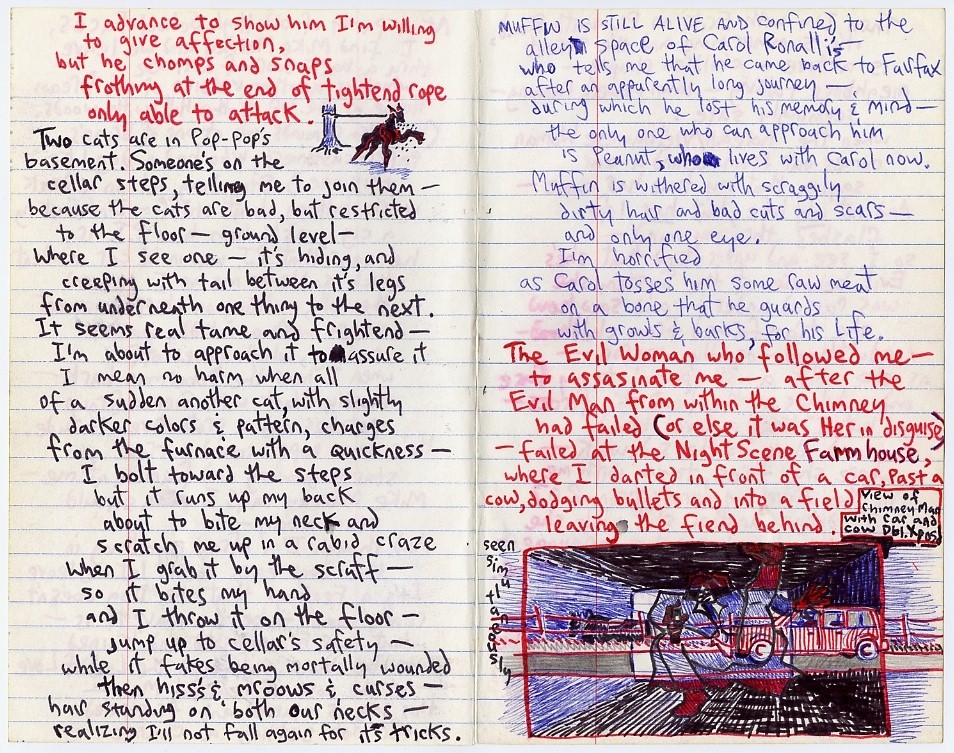 I advance to show him I'm willing
to give affection,
but he chomps and snaps
frothing at the end of tightend rope
only able to attack.
Two cats are in Pop-Pop's
basement. Someone's on the
cellar steps, telling me to join them—
because the cats are bad, but restricted
to the floor — ground level—
where I see one — it's hiding, and
creeping with tail between it's legs
from underneath one thing to the next.
It seems real tame and frightend—
I'm about to approach it to assure it
I mean no harm when all
of a sudden another cat, with slightly
darker colors & pattern, charges
from the furnace with a quickness—
I bolt toward the steps
but it runs up my back
about to bite my neck and
scratch me up in a rabid craze
when I grab it by the scruff—
so it bites my hand
and I throw it on the floor—
jump up to cellar's safety—
while it fakes being mortally wounded
then hiss's & mroows & curses—
hair standing on both our necks—
realizing I'll not fall again for it's tricks.
Muffin is STILL ALIVE AND confined to the
alley space of Carol Ronallis
who tells me that he came back to Fairfax
after an apparently long journey—
during which he lost his memory & mind—
the only one who can approach him
is Peanut, who lives with Carol now.
Muffin is withered with scraggily
dirty hair and bad cuts and scars—
and only one eye.
I'm horrified
as Carol tosses him some raw meat
on a bone that he guards
with growls & barks, for his life.
The Evil Woman who followed me—
to assasinate me — after the
Evil Man from within the Chimney
had failed (or else it was Her in disguise)
—failed at the Night Scene Farmhouse,
where I darted in front of a car, past a
cow, dodging bullets and into a field
leaving the fiend behind.
View of
Chimney Man
with Car and
Cow Dbl. Xpos
seen
simultaneously